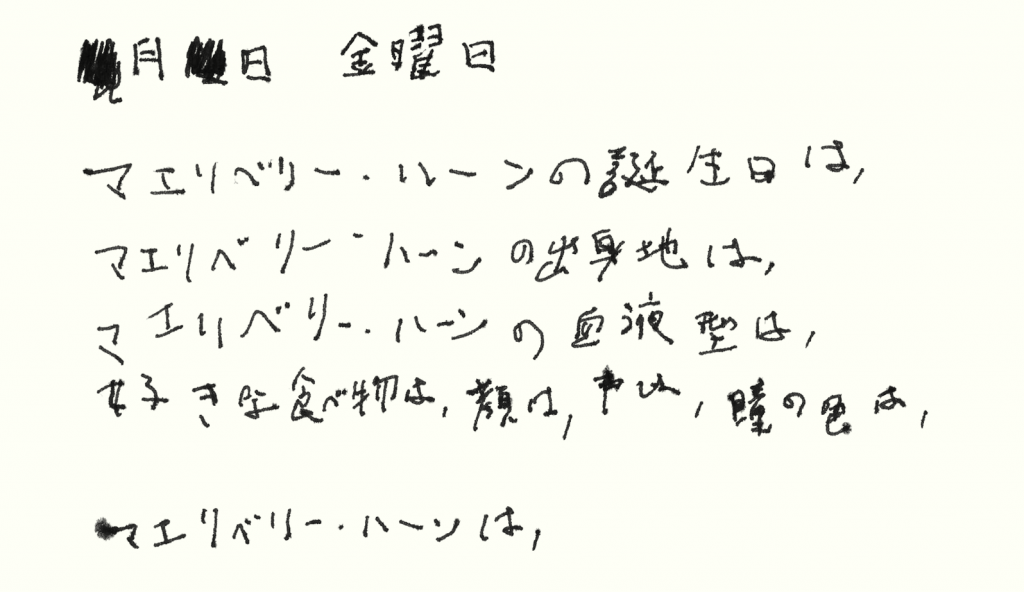 月 日 金曜日
マエリベリー・ハーンの誕生日は,
マエリベリー・ハーンの出身地は,
マエリベリー・ハーンの血液型は,
好きな食べ物は, 顔は, は, 瞳の色は,
マエリベリー・ハーンは,